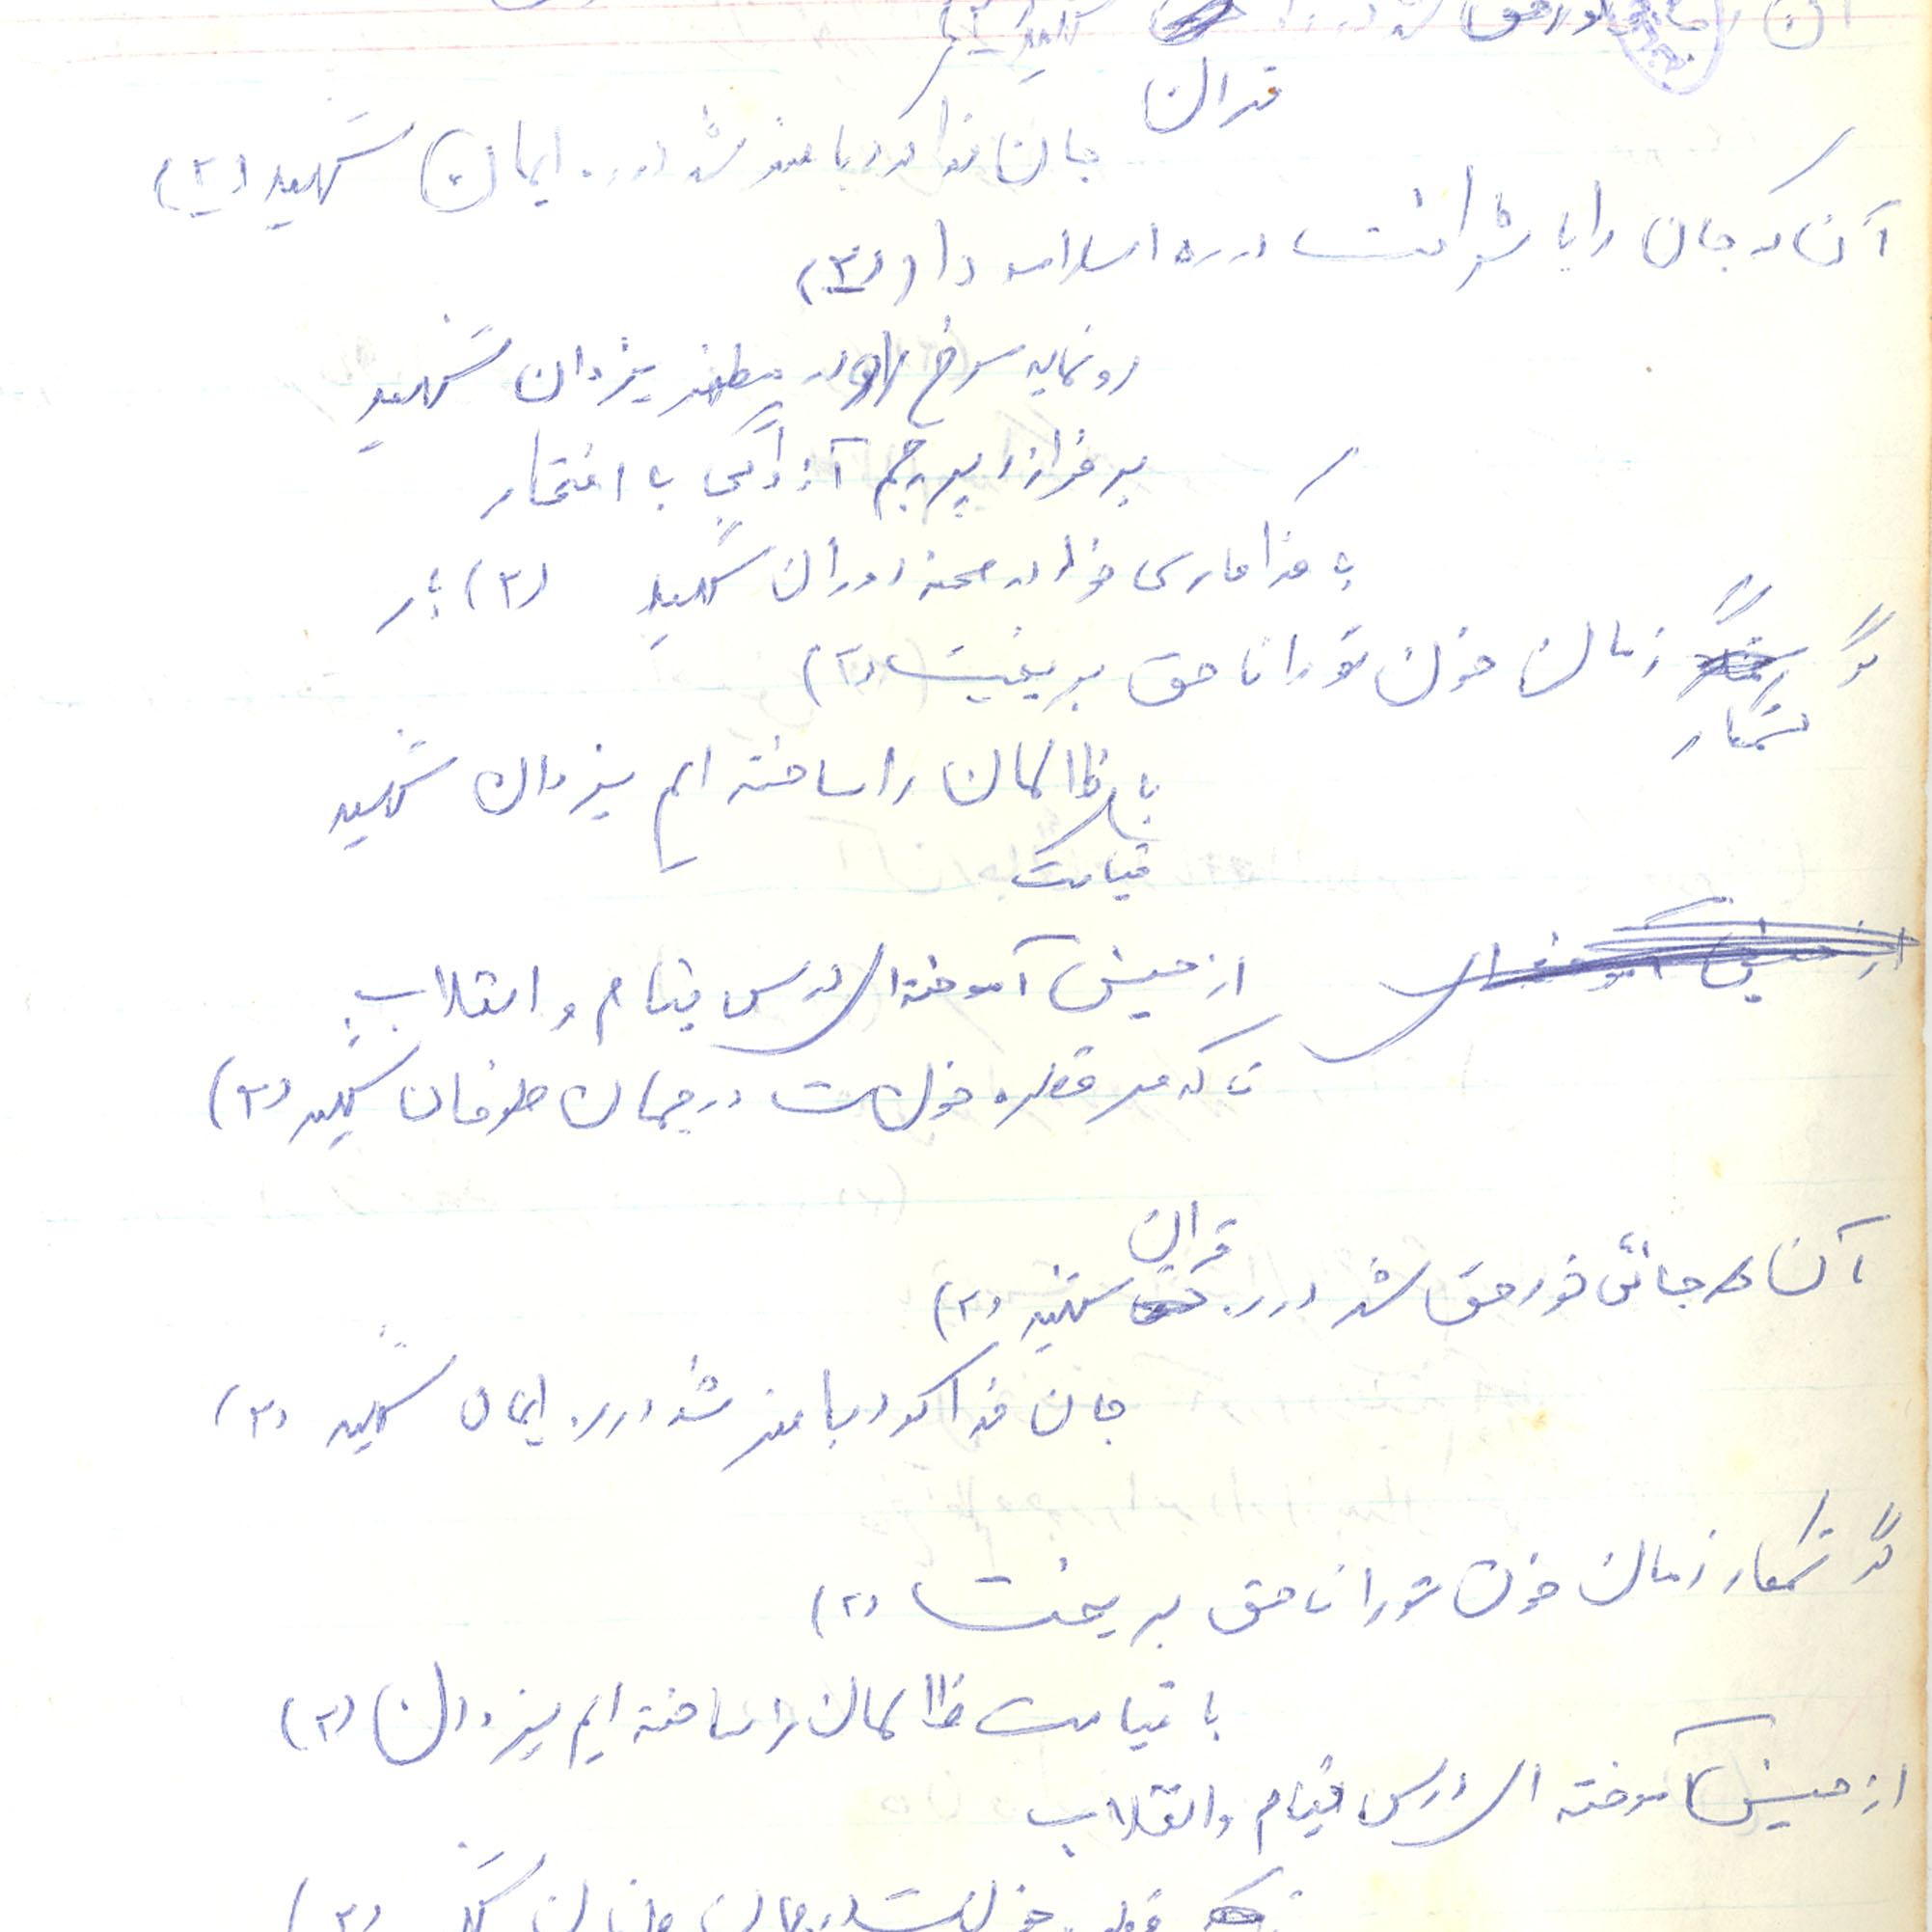 قران
جان فدا کرد با هنر شد در ره ایمان شهید (۲)
آن که جان را با شرافت در ره اسلام داد (۲)
رو نماید سرخ در مظهر یزدان شهید
بر فراز د پرچم آزادگی با افتخار
با فداکاری خود در صحنه دوران شهید (۲)
گر ستمکار زمان خون تو را ناحق بریخت (۲)
با قیامت ظالمان را ساخته ایم یزدان شهید
از حسین آموخته ای درس قیام و انقلاب
تا که هر قطره خونت در جهان طوفان شهید (۲)
قران
آن که جانش نور حق شد در ره شهید (۲)
جان فدا کرد با هنر شد در ره ایمان شهید (۲)
گر ستمکار زمان خون تو را ناحق بریخت (۲)
با قیامت ظالمان را ساخته ایم یزدان (۲)
از حسین آموخته ای درس قیام و انقلاب